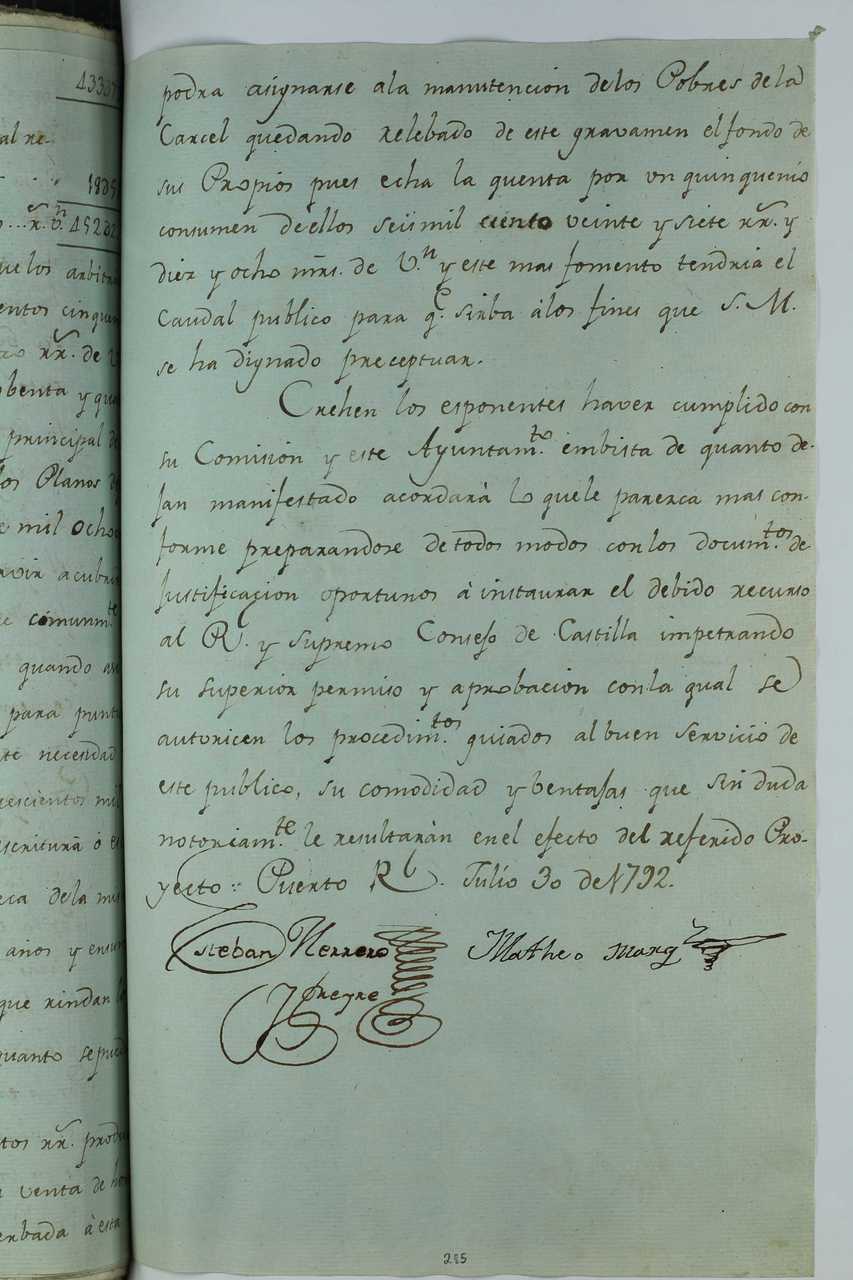 podra asignarse ala manutencion delos Pobres dela
Carcel quedando relebado de este gravamen el fondo de
sus Propios pues echa la quenta por un quinquenio
consumen de ellos seis mil ciento veinte y siete rr.^s y
diez y ocho mrs. de V.^n y este mas fomento tendria el
Caudal publico para q.^e sirba álos fines que S. M.
se ha dignado preceptuar.
Crehen los esponentes haver cumplido con
su Comision y este Ayuntam.^to embista de quanto de-
jan manifestado acordará lo quele parezca mas con-
forme preparandose de todos modos con los docum.^tos de
justificacion oportunos á instaurar el debido recurso
al R.^l y supremo Consejo de Castilla impetrando
su superior permiso y aprobacion con la qual se
autoricen los procedim.^tos guiados al buen servicio de
este publico, su comodidad y bentajas que sin duda
notoriam.^te le resultarán en el efecto del referido Pro-
yecto :: Puerto R.^l Julio 30 de 1792.
Esteban Herrero Matheo Marq^z
Freyre
285
4330
al re-
1895
4523
que los arbitr
entos cinquen
rr. de V
obenta y qu
principal de
los Planos de
e mil ocho
comunm.^te
quando
para punt
te necesidad
rescientos mil
escritura ó
eca dela mis
años y en
que rindan
quanto se pued
tos rr. prod
venta de
erbada á esta